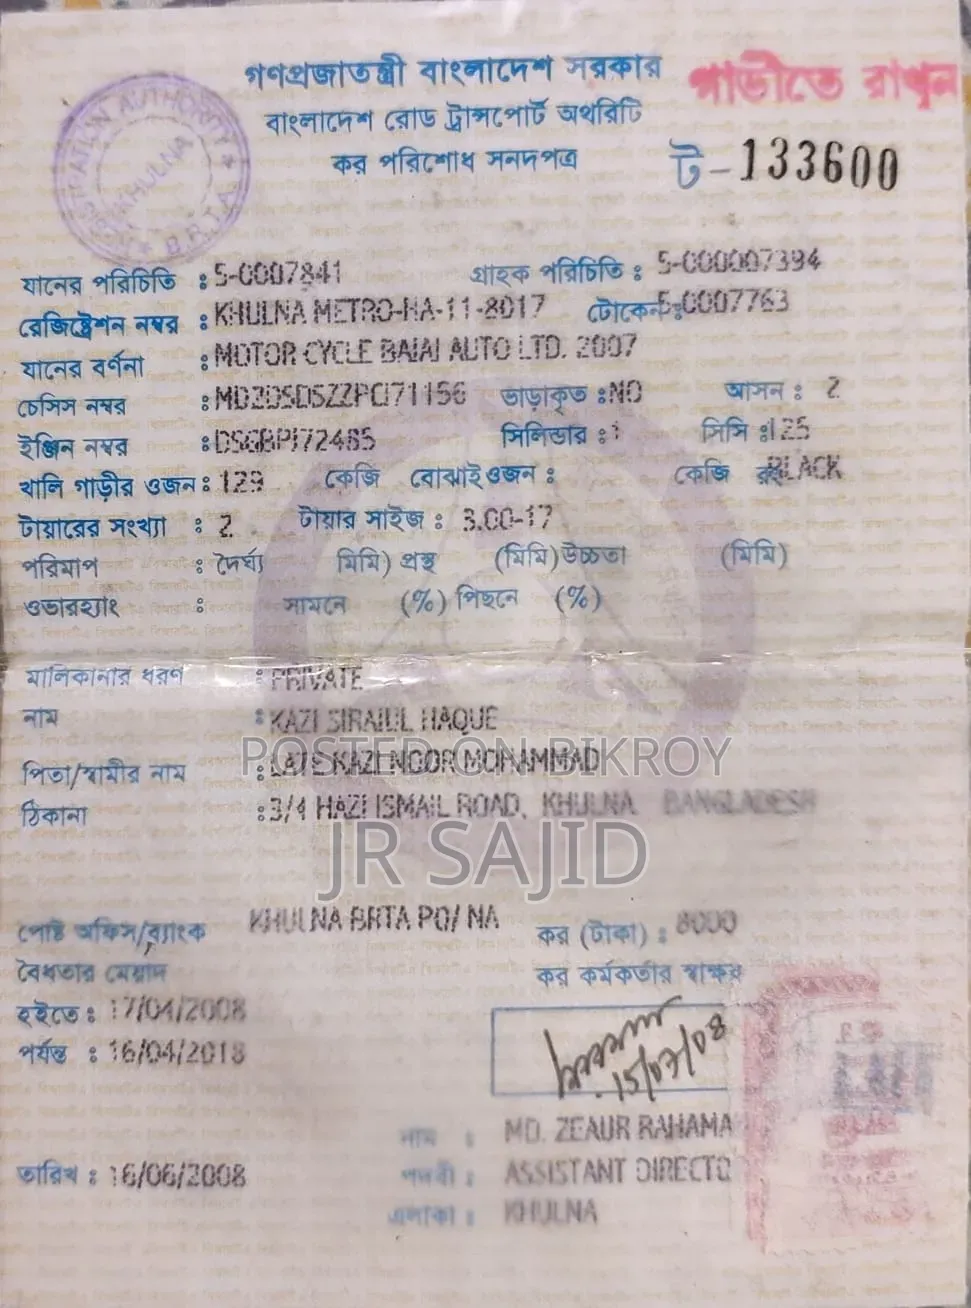 গণপ্রজাতন্ত্রী বাংলাদেশ সরকার
গাড়ীতে রাখুন
বাংলাদেশ রোড ট্রান্সপোর্ট অথরিটি
কর পরিশোধ সনদপত্র
ট-133600
REGISTRATION AUTHORITY ★ B.R.T.A ★ KHULNA
যানের পরিচিতি : 5-0007841 গ্রাহক পরিচিতি : 5-000007394
রেজিষ্ট্রেশন নম্বর : KHULNA METRO-HA-11-8017 টোকেন : 5-0007763
যানের বর্ণনা : MOTOR CYCLE BAJAJ AUTO LTD. 2007
চেসিস নম্বর : MD2DSDSZZPCJ71156 ভাড়াকৃত : NO আসন : 2
ইঞ্জিন নম্বর : DSGBPJ72485 সিলিন্ডার : 1 সিসি : 125
খালি গাড়ীর ওজন : 129 কেজি বোঝাই ওজন : কেজি রং BLACK
টায়ারের সংখ্যা : 2 টায়ার সাইজ : 3.00-17
পরিমাপ : দৈর্ঘ্য মিমি) প্রস্থ (মিমি) উচ্চতা (মিমি)
ওভারহ্যাং : সামনে (%) পিছনে (%)
মালিকানার ধরণ : PRIVATE
নাম : KAZI SIRAJUL HAQUE
POSTED ON BIKROY
পিতা/স্বামীর নাম : LATE KAZI NOOR MOHAMMAD
ঠিকানা : 3/4 HAZI ISMAIL ROAD, KHULNA BANGLADESH
JR SAJID
পোষ্ট অফিস/ব্যাংক KHULNA BRTA PO/ NA কর (টাকা) : 8000
বৈধতার মেয়াদ কর কর্মকর্তার স্বাক্ষর
হইতে : 17/04/2008
পর্যন্ত : 16/04/2018
15/07/08
নাম : MD. ZEAUR RAHAMA
তারিখ : 16/06/2008 পদবী : ASSISTANT DIRECTO
এলাকা : KHULNA